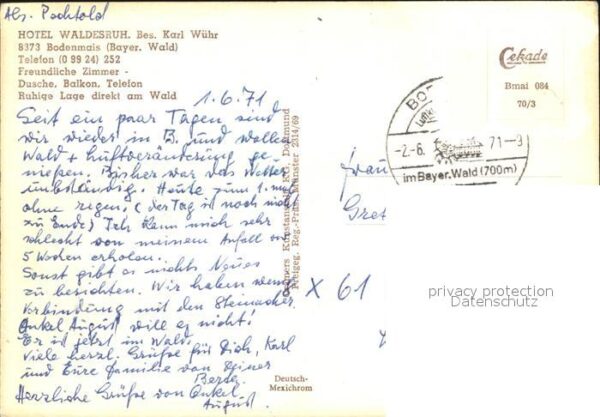 Abs. Pachtold
HOTEL WALDESRUH. Bes. Karl Wühr
8373 Bodenmais (Bayer. Wald)
Telefon (0 99 24) 252
Freundliche Zimmer -
Dusche, Balkon, Telefon
Ruhige Lage direkt am Wald
1.6.71
Seit ein paar Tagen sind
wir wieder in B. und wollen
Wald + Luftveränderung ge-
nießen. Bisher war das Wetter
unbeständig. Heute zum 1. mal
ohne regen, (der Tag ist noch nicht
zu Ende) Ich kann mich sehr
schlecht von meinem Anfall vor
5 Wochen erholen.
Sonst gibt es nichts Neues
zu berichten. Wir haben wenig
Verbindung mit den Steinacher
Onkel August will es nicht!
Er ist jetzt im Wald.
Viele herzl. Grüße für Dich, Karl
und Eure Familie von Deiner
Herzliche Grüße von Onkel
August.
Kunstanstalt KG. Dortmund
Freigeg. Reg.-Präs. Münster 2314/69
Deutsch-
Mexichrom
Cekade
Bmai 084
70/3
BO
-2.-6. 71-9
im Bayer. Wald (700m)
Frau
Gret
x 61
privacy protection
Datenschutz